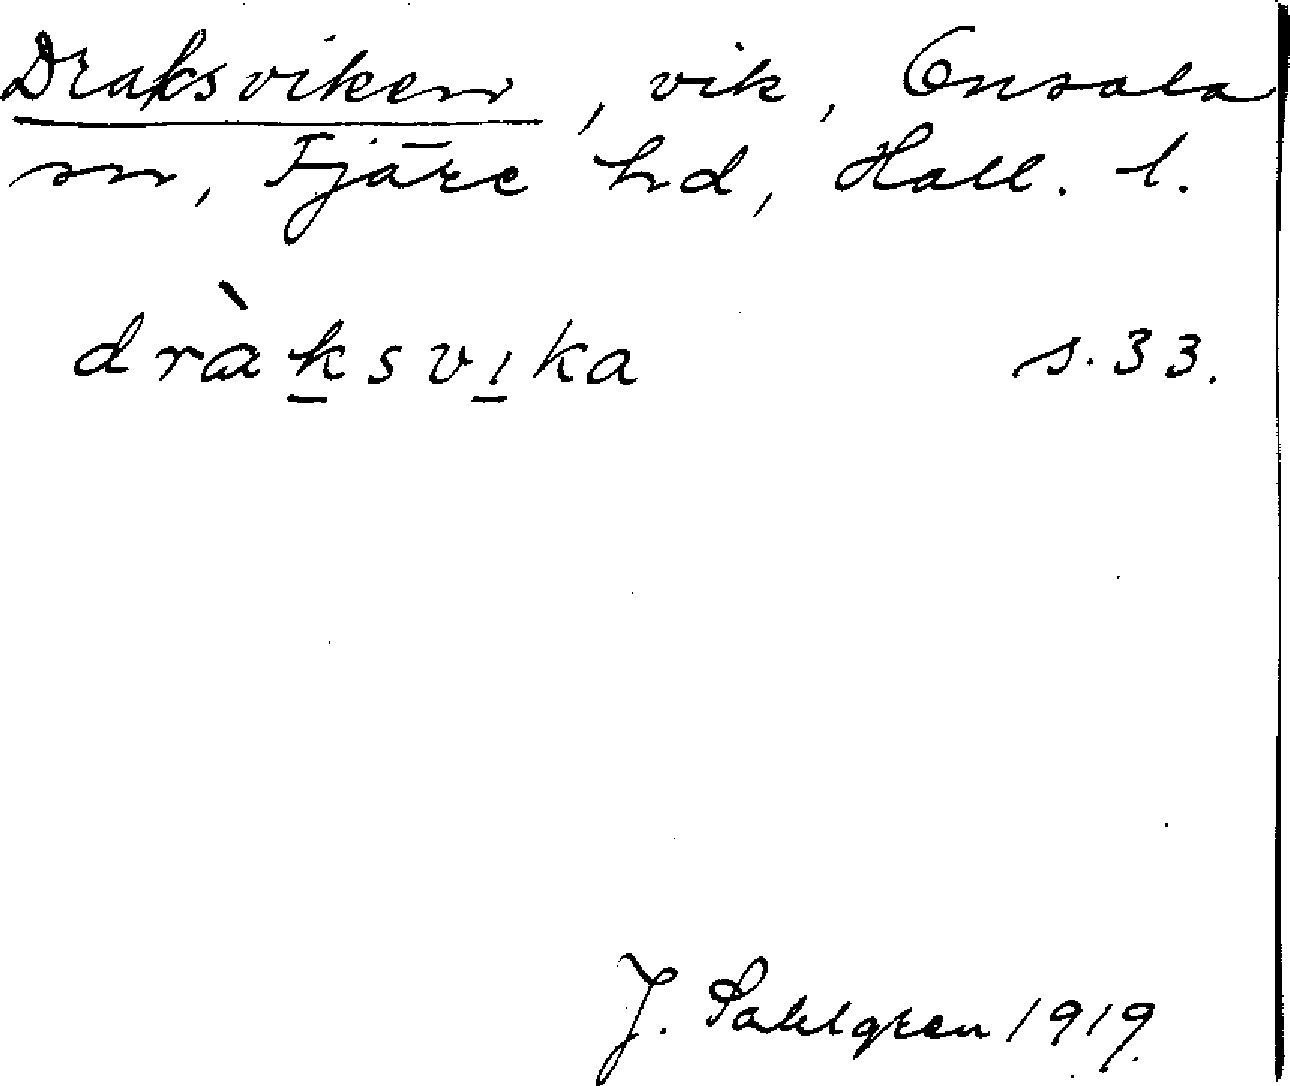 Draksviken, vik, Onsala
sn, Fjäre hd, Hall. l.
dràksvika s. 33.
J. Sahlgren 1919.